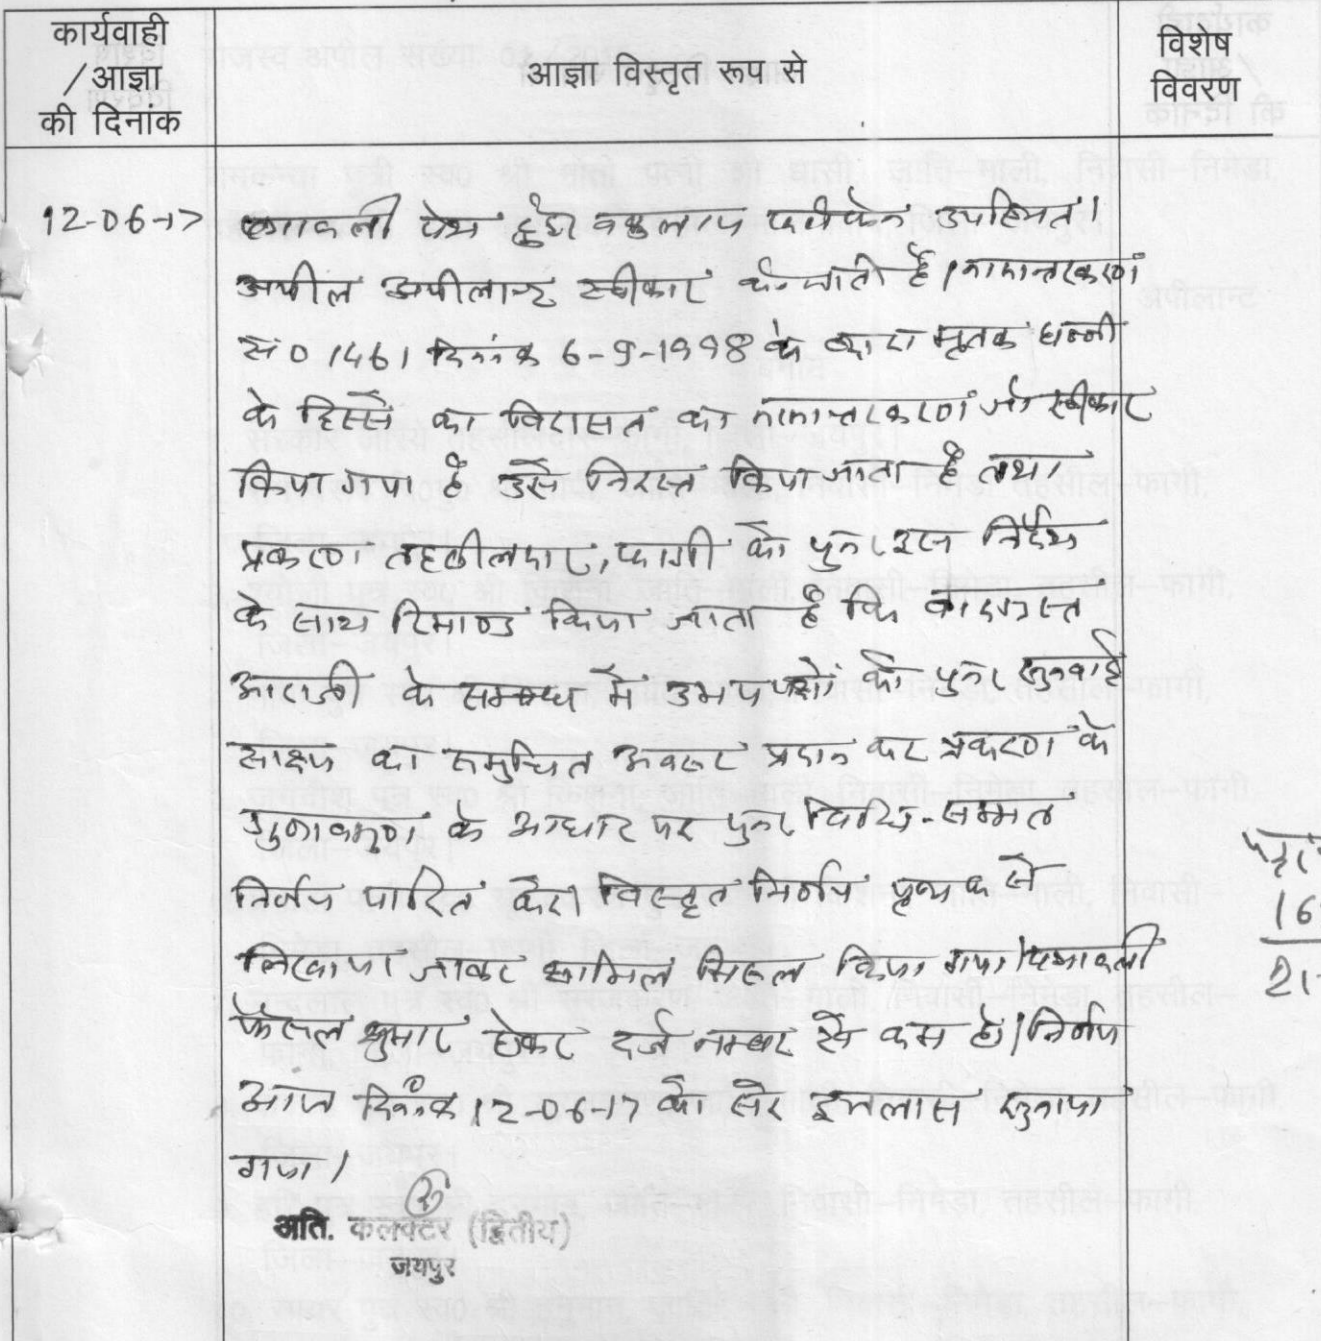 कार्यवाही
/आज्ञा
की दिनांक
आज्ञा विस्तृत रूप से
विशेष
विवरण
12-06-17
पत्रावली पेश हुई। वकुलाय फरीकेन उपस्थित।
अपील अपीलान्ट स्वीकार की जाती है। नामान्तरकरण
सं0 1461 दिनांक 6-9-1998 के द्वारा मृतक धन्नी
के हिस्से का विरासत का नामान्तरकरण जो स्वीकार
किया गया है उसे निरस्त किया जाता है तथा
प्रकरण तहसीलदार, फागी को पुनः इस निर्देश
के साथ रिमाण्ड किया जाता है कि वादग्रस्त
आराजी के सम्बन्ध में उभय पक्षों को पुनः सुनवाई
साक्ष्य का समुचित अवसर प्रदान कर प्रकरण के
गुणावगुण के आधार पर पुनः विधि-सम्मत
निर्णय पारित करें। विस्तृत निर्णय पृथक से
लिखाया जाकर शामिल मिसल किया गया। पत्रावली
फैसल शुमार होकर दर्ज नम्बर से कम हो। निर्णय
आज दिनांक 12-06-17 को सरे इजलास सुनाया
गया।
अति. कलक्टर (द्वितीय)
जयपुर
16
21